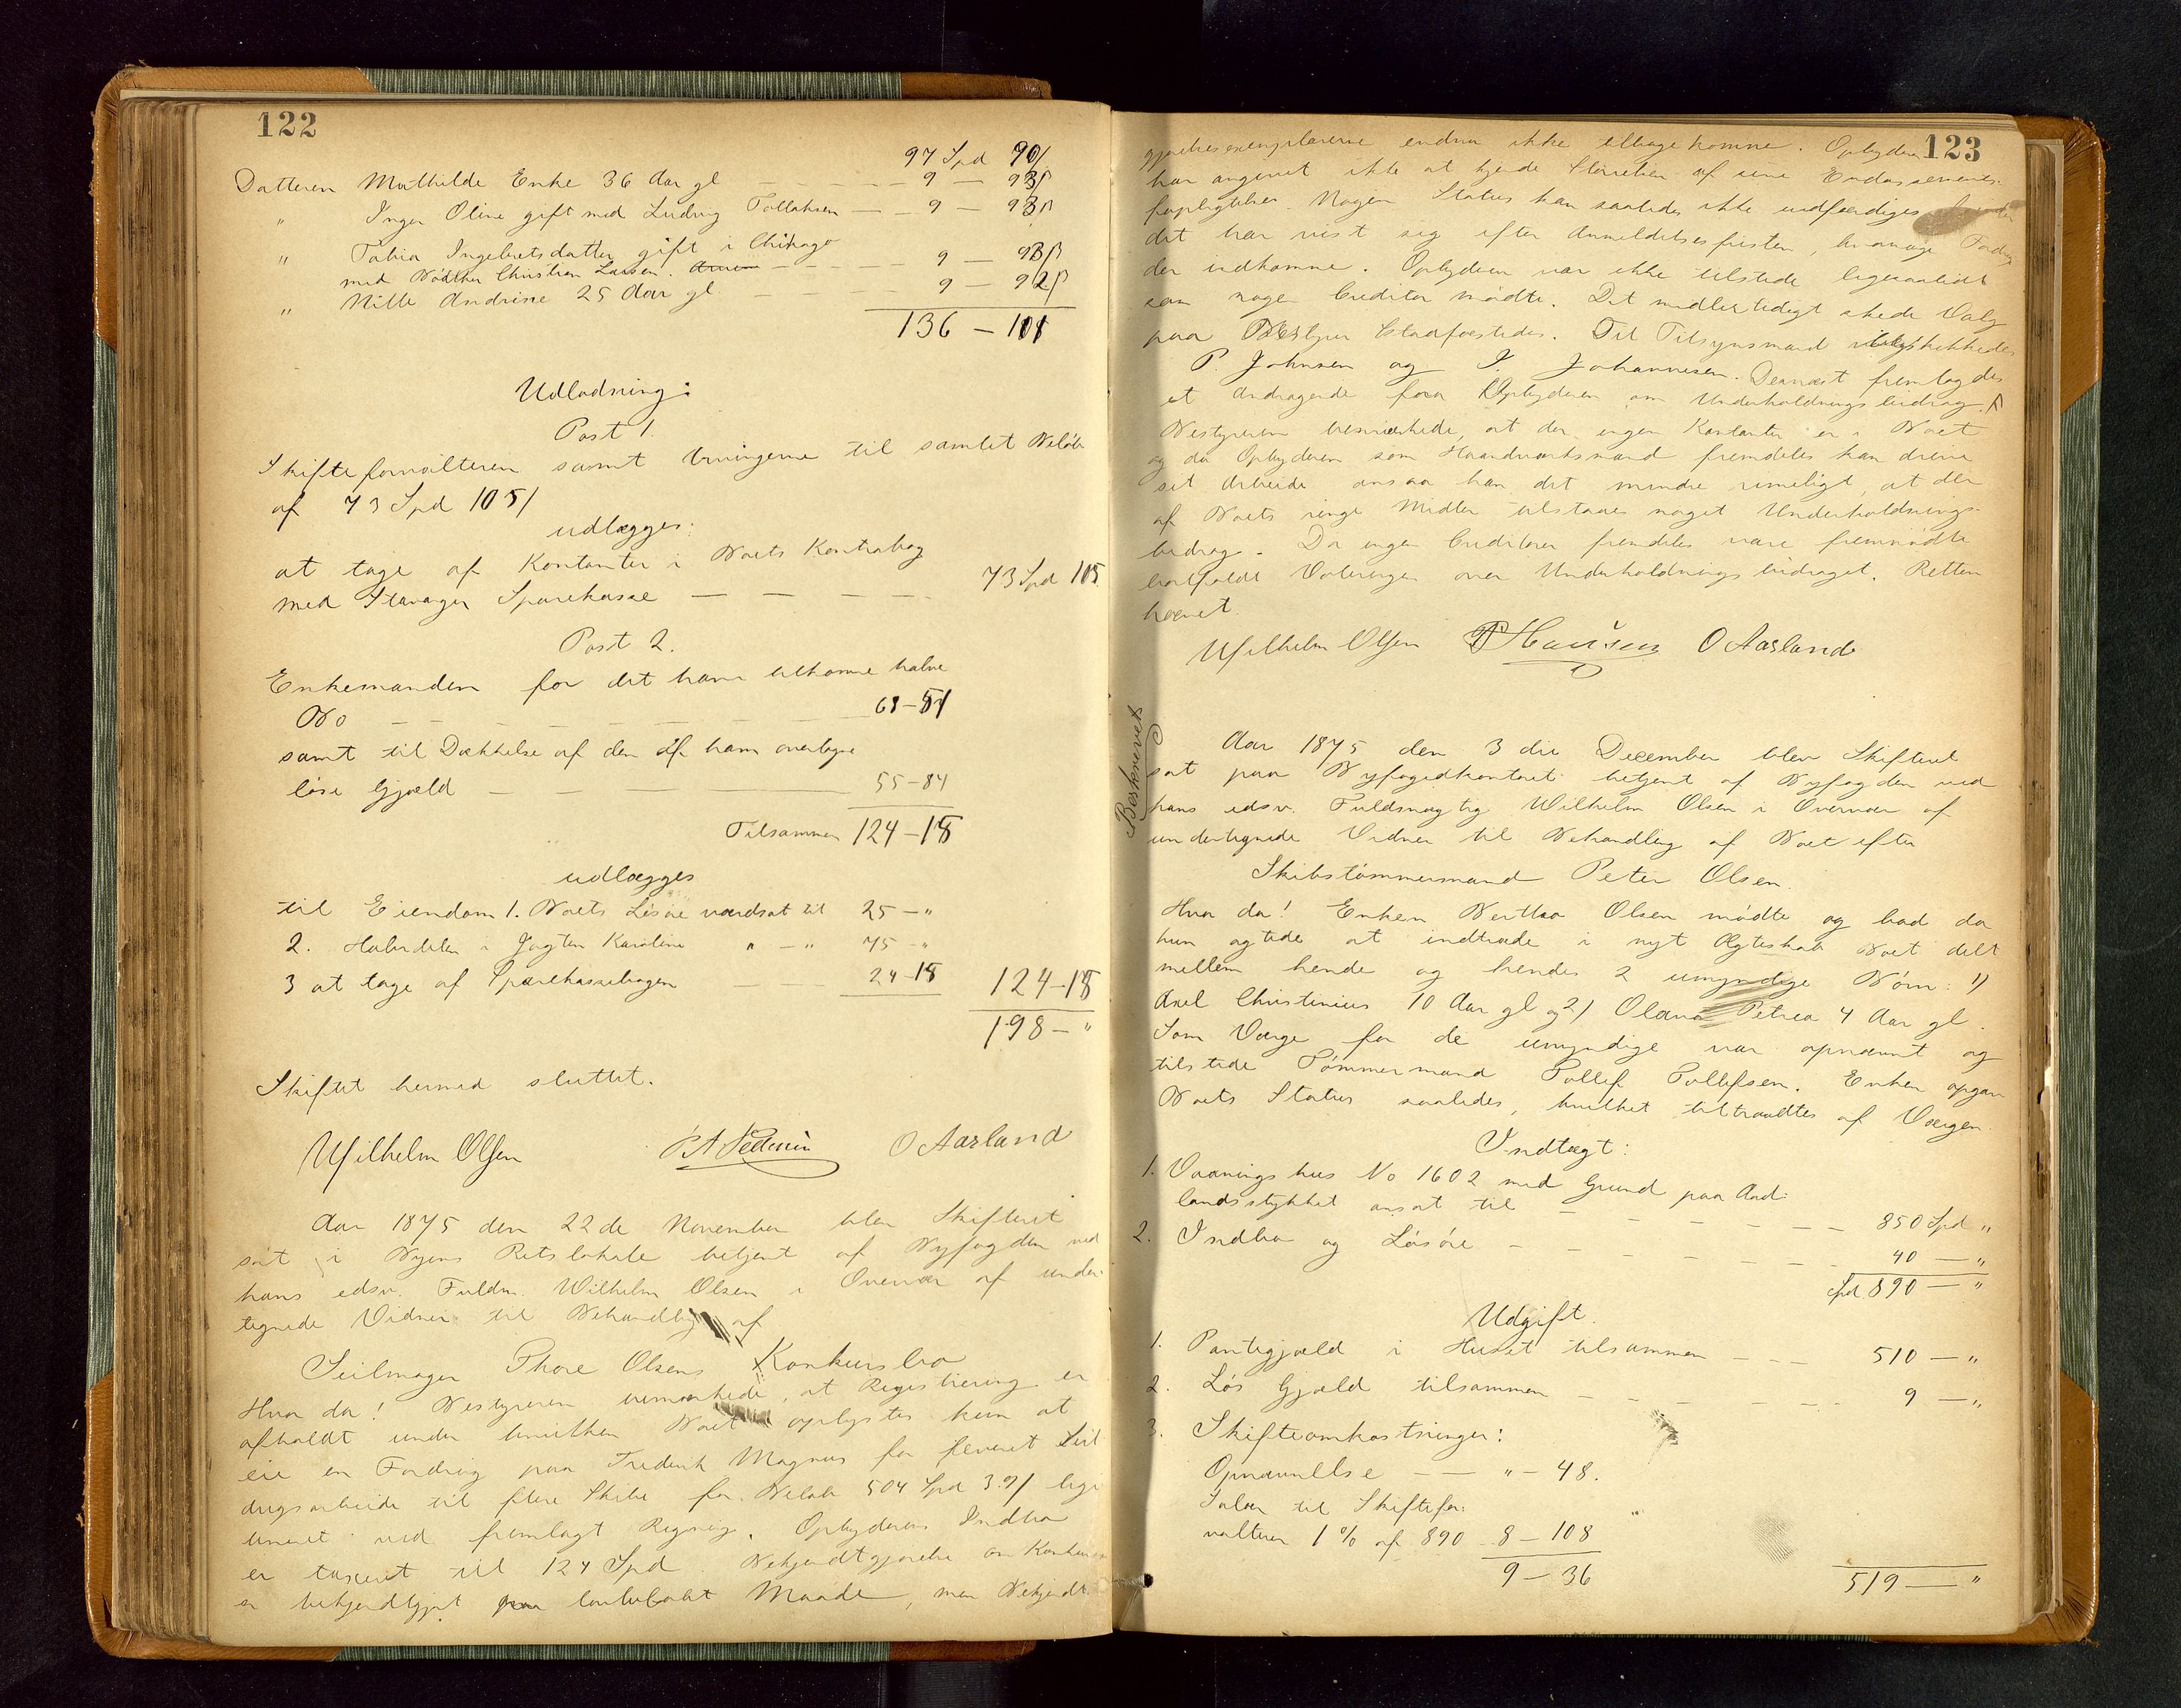 122
97 Spd 90/
Datteren Mathilde Enke 36 Aar gl — 9 — 93β
" Inger Oline gift med Ludvig Tollaksen — 9 — 93β
" Tobia Ingebretsdatter gift i Chikago
med Bødker Christian Larsen. — 9 — 93β
" Mille Andrine 25 Aar gl — 9 — 92β
136 — 101
Udlodning:
Post 1.
Skifteforvalteren samt Arvingerne til samlet Beløb
af 73 Spd 105/
udlægges:
at tage af Kontanter i Boets Kontrabog
med Stavanger Sparekasse — 73 Spd 105
Post 2.
Enkemanden for det ham tilkomne halve
Bo — 68–51
samt til Dækkelse af den af ham overtagne
løse Gjæld — 55–84
Tilsammen 124–18
udlægges
til Eiendom 1. Boets Løsøre værdsat til 25 — "
2. Halvdelen i Jagten Karoline " — " 75 — "
3 at tage af Sparekassebogen — 24–18 124–18
198 — "
Skiftet hermed sluttet.
Wilhelm Olsen O Aarland
Aar 1875 den 22de November blev Skifteret
sat i Byens Retslokale betjent af Byfogden ved
hans edsv. Fuldm. Wilhelm Olsen i Overvær af under-
tegnede Vidner til Behandling af
Seilmager Thore Olsens Konkursbo
Hvor da! Bestyreren bemærkede, at Registrering er
afholdt under hvilken Boet oplystes kun at
eie en Fordring paa Frederik Magnus for leveret Seil
dugsarbeide til flere Skibe for Beløb 504 Spd 3.9/ legi
timeret ved fremlagt Regning. Opbyderens Indbo
er taxeret til 124 Spd. Bekjendtgjørelse om Konkursen
er bekjendtgjort paa lovbefalet Maade, men Bekjendt-
123
gjørelsesexemplarerne endnu ikke tilbagekomne. Opbyderen
har angivet ikke at kjende Størrelsen af sine Endossements-
forpligtelser. Nogen Status kan saaledes ikke udfærdiges
det har vist sig efter Anmeldelsesfristen, hvormange Fordring
der indkomme. Opbyderen var ikke tilstede ligesaalidt
som nogen Creditor mødte. Det midlertidigt skede Valg
paa Bestyrer stadfæstedes. Til Tilsynsmænd beskikkedes
P. Johnsen og J. Johannesen. Dernæst fremlagdes
et Andragende fra Opbyderen om Underholdningsbidrag.
Bestyreren bemærkede, at der ingen Kontanter er i Boet
og da Opbyderen som Haandværksmand fremdeles kan drive
sit Arbeide ansaa han det mindre rimeligt, at der
af Boets ringe Midler tilstaaes noget Underholdnings-
bidrag. Da ingen Creditorer fremdeles vare fremmødte
bortfaldt Voteringen over Underholdningsbidraget. Retten
hævet.
Wilhelm Olsen P Hansen O Aarland
Beskrevet
Aar 1875 den 3die December blev Skifteret
sat paa Byfogedkontoret betjent af Byfogden ved
hans edsv. Fuldmægtig Wilhelm Olsen i Overvær af
undertegnede Vidner til Behandling af Boet efter
Skibstømmermand Peter Olsen.
Hvor da! Enken Bertha Olsen mødte og bad da
hun agtede at indtræde i nyt Ægteskab Boet delt
mellem hende og hendes 2 umyndige Børn: 1)
Axel Christinius 10 Aar gl og 2) Olava Petrea 4 Aar gl.
Som Værge for de umyndige var opnævnt og
tilstede Tømmermand Tollef Tollefsen. Enken opgav
Boets Status saaledes, hvilket tiltraadtes af Værgen.
Indtægt:
1. Vaaningshus No 1602 med Grund paa Aad-
landsstykket ansat til — 850 Spd "
2. Indbo og Løsøre — 40 — "
Spd 890 — "
Udgift.
1. Pantegjæld i Huset tilsammen — 510 — "
2. Løs Gjæld tilsammen — 9 — "
3. Skifteomkostninger:
Opnævnelse — " — 48.
Salær til Skiftefor-
valteren 1 % af 890 8 — 108
9 — 36 519 — "